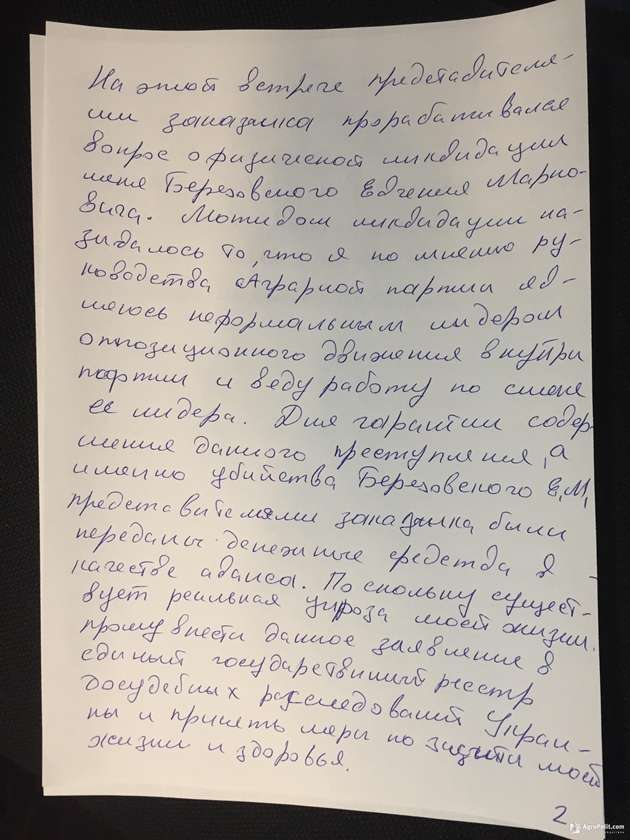 На этой встрече представителя-
ми заказчика прорабатывался
вопрос о физической ликвидации
меня Березовского Евгения Марко-
вича. Мотивом ликвидации на-
зывалось то, что я по мнению ру-
ководства Аграрной партии яв-
ляюсь неформальным лидером
оппозиционного движения внутри
партии и веду работу по смене
ее лидера. Для гарантии совер-
шения данного преступления, а
именно убийства Березовского Е.М,
представителями заказчика были
переданы денежные средства в
качестве аванса. Поскольку сущест-
вует реальная угроза моей жизни
прошу внести данное заявление в
единый государственный реестр
досудебных расследований Украи-
ны и принять меры по защите моей
жизни и здоровья.
2
AgroPolit.com